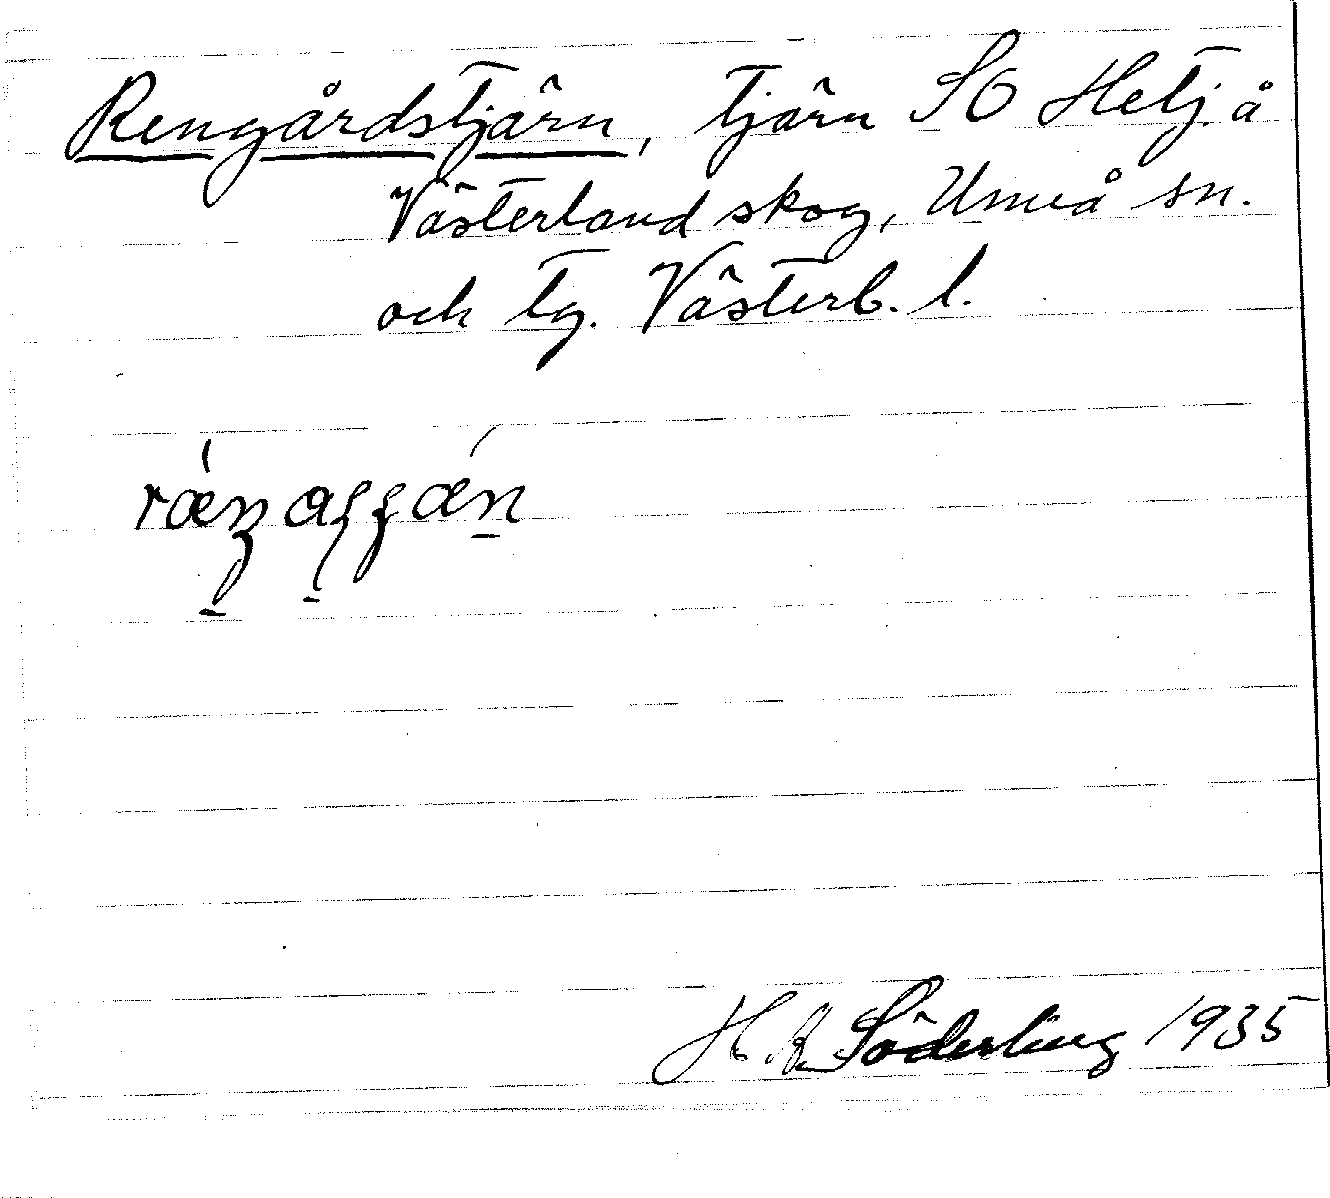 Rengårdstjärn, tjärn SO Hetj. å
Västerland skog, Umeå sn.
och tg. Västerb. l.
H. Söderling 1935